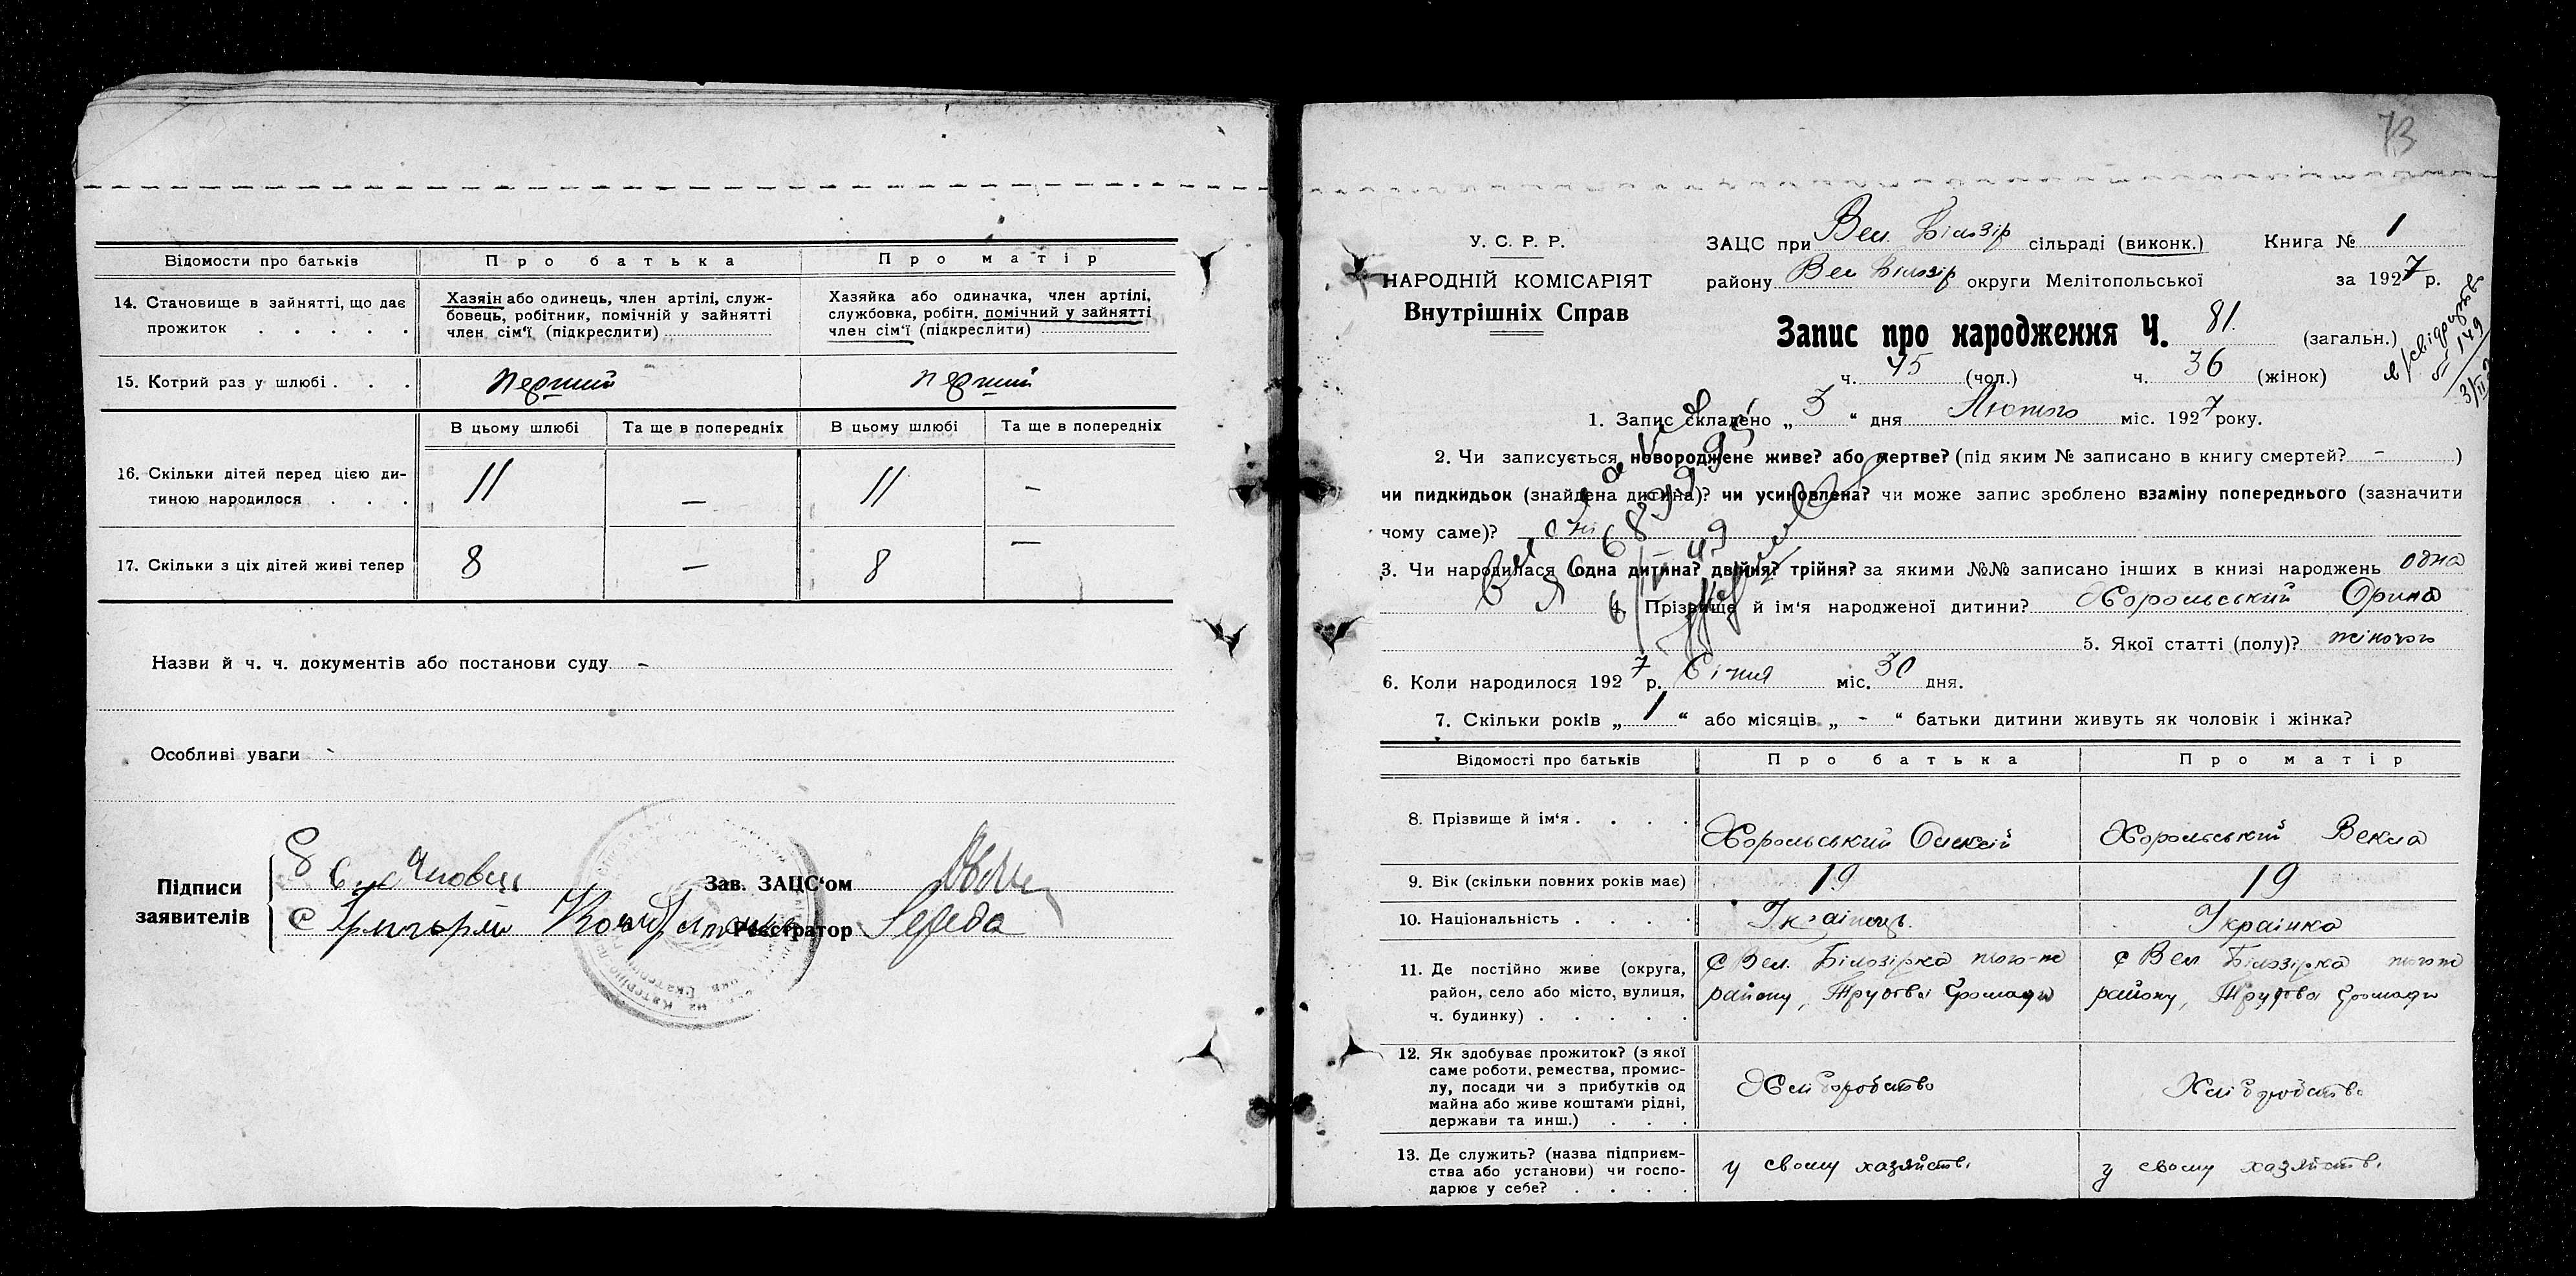 Відомости про батьків
Про батька
Про матір
14. Становище в зайнятті, що дає
прожиток . . . . .
Хазяін або одинець, член артілі, служ-
бовець, робітник, помічній у зайнятті
член сім'ї (підкреслити)
Хазяйка або одиначка, член артілі,
службовка, робітн. помічний у зайнятті
член сім'ї (підкреслити)
15. Котрий раз у шлюбі . . .
перший
перший
В цьому шлюбі
Та ще в попередніх
В цьому шлюбі
Та ще в попередніх
16. Скільки дітей перед цією ди-
тиною народилося . . .
11
—
11
—
17. Скільки з ціх дітей живі тепер
8
—
8
—
Назви й ч. ч. документів або постанови суду -
Особливі уваги
Підписи
заявителів
Зав. ЗАЦС'ом
Григорій
Реєстратор Середа
73
У. С. Р. Р.
НАРОДНІЙ КОМІСАРІЯТ
Внутрішніх Справ
ЗАЦС при Вел. Білозір сільраді (виконк.) Книга № 1
району Вел Білозір округи Мелітопольської за 1927 р.
Запис про народження Ч. 81 (загальн.)
ч. 45 (чол.) ч. 36 (жінок)
1. Запис складено „ 3 " дня Лютого міс. 1927 року.
2. Чи записується новороджене живе? або мертве? (під яким № записано в книгу смертей? - )
чи пидкидьок (знайдена дитина)? чи усиновлена? чи може запис зроблено взаміну попереднього (зазначити
чому саме)?
3. Чи народилася одна дитина? двійня? трійня? за якими №№ записано інших в книзі народжень одна
4. Прізвище й ім'я народженої дитини? Хорольський Орина
5. Якої статті (полу)? жіночого
6. Коли народилося 1927 р. Січня міс. 30 дня.
7. Скільки років „ 1 " або місяців „ - " батьки дитини живуть як чоловік і жінка?
Відомості про батьків
Про батька
Про матір
8. Прізвище й ім'я . . . .
Хорольський Олексій
Хорольський Векла
9. Вік (скільки повних років має)
19
19
10. Національність . . . .
Украінець
Украінка
11. Де постійно живе (округа,
район, село або місто, вулиця,
ч. будинку) . . . . .
с Вел. Білозірка того-ж
району, Трудові громади
с Вел Білозірка того ж
району, Трудові громади
12. Як здобуває прожиток? (з якої
саме роботи, ремества, промис-
лу, посади чи з прибутків од
майна або живе коштами рідні,
держави та инш.) . . .
Хліборобство
Хліборобство
13. Де служить? (назва підприєм-
ства або установи) чи госпо-
дарює у себе? . . . .
у свому хазяйстві
у свому хазяйстві